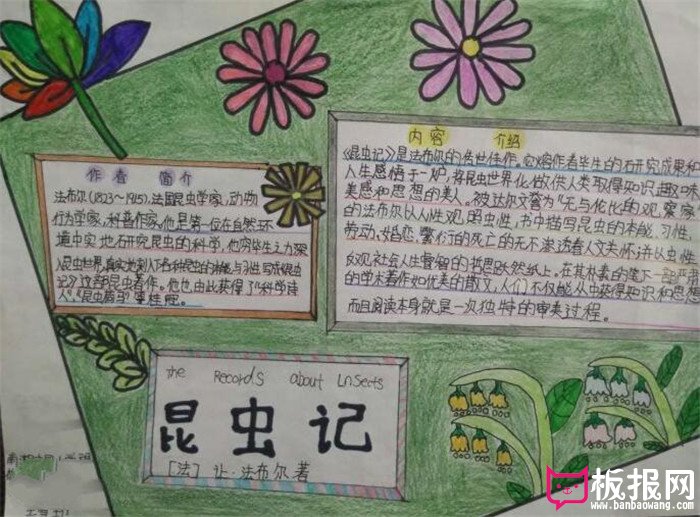 作者 简介
法布尔(1823~1915),法国昆虫学家,动物
行为学家,科普作家。他是第一位在自然环
道中实地研究昆虫的科学,他穷毕生之力深
入昆虫世界,真实地刻入了各种昆虫的本能与习性写成《昆虫
记》这部昆虫著作。他也由此获得了“科学诗
人”、《昆虫荷马》等桂冠。
内容 介绍
《昆虫记》是法布尔的传世佳作,实熔作者毕生的研究成果和
人生感悟于一炉,将昆虫世界化做供人类取得知识、趣味、
美感和思想的美人。被达尔文誉为“无与伦比的观察家
的法布尔以人性观明虫性,书中描写昆虫的本能、习性、
劳动、婚恋、繁衍的死亡的无不渗透着人文关怀并以虫性
反观社会人生睿智的书思跃然纸上。在其朴素的笔下一部严肃
的学术著作如优美的散文,人们不仅能从中获得知识和思想
而且阅读本身就是一次独特的审美过程。
the Records about Lnsects
昆虫记
[法] 让·法布尔著
板报网
www.banbaowang.com